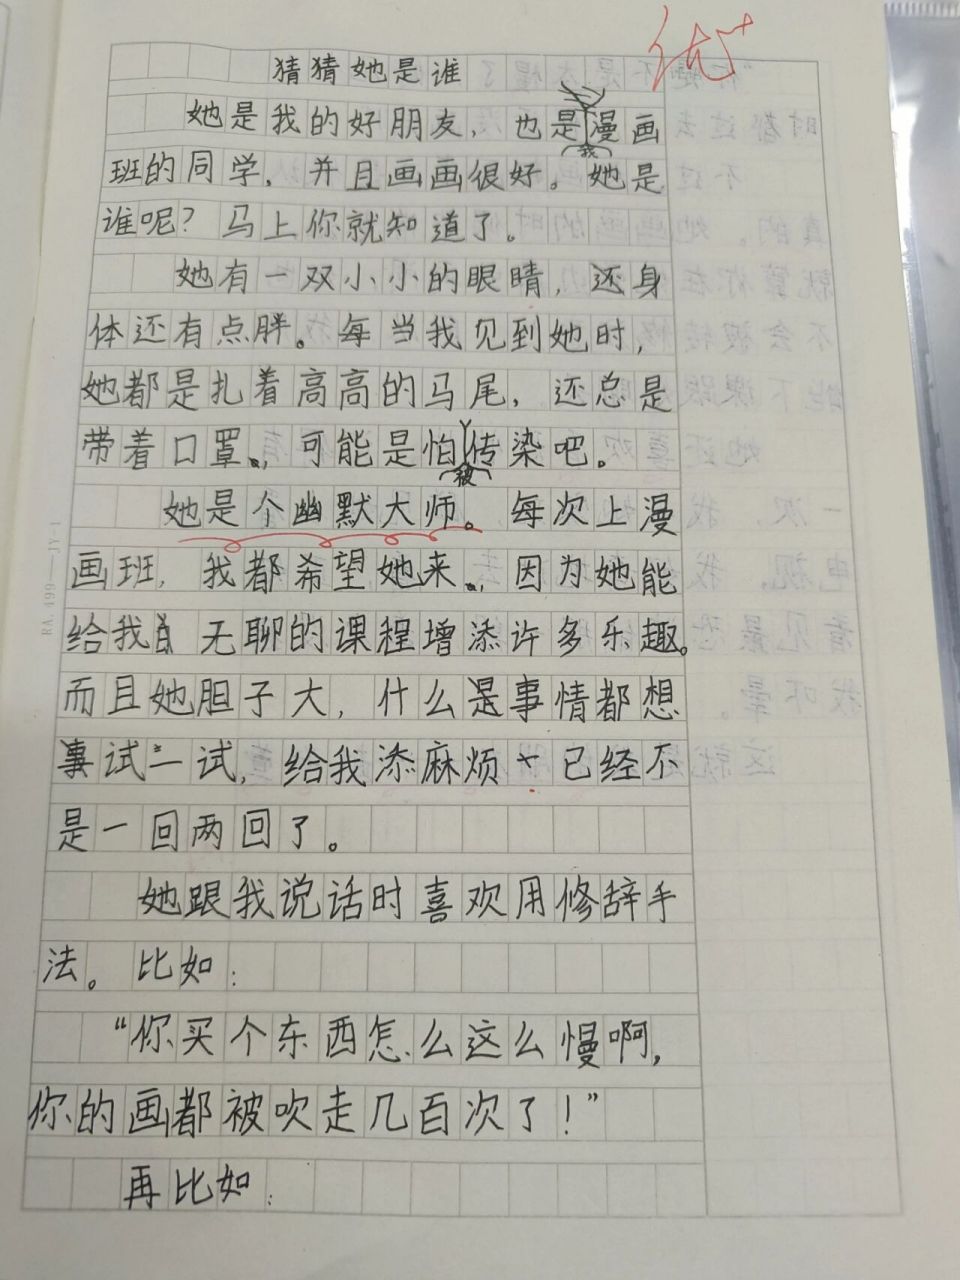 优+
猜猜她是谁
她是我的好朋友，也是我漫画
班的同学，并且画画很好。她是
谁呢？马上你就知道了。
她有一双小小的眼睛，还身
体还有点胖。每当我见到她时，
她都是扎着高高的马尾，还总是
带着口罩，可能是怕被传染吧。
她是个幽默大师。每次上漫
画班，我都希望她来，因为她能
给我 无聊的课程增添许多乐趣。
而且她胆子大，什么是事情都想
事试一试，给我添麻烦 已经不
是一回两回了。
她跟我说话时喜欢用修辞手
法。比如：
“你买个东西怎么这么慢啊，
你的画都被吹走几百次了！”
再比如：
RA.499—JY-1